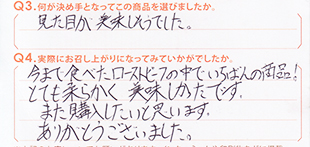 Q3.何が決め手となってこの商品を選びましたか。
見た目が美味しそうでした。
Q4.実際にお召し上がりになってみていかがでしたか。
今まで食べたローストビーフの中でいちばんの商品!
とても柔らかく美味しかったです。
また購入したいと思います。
ありがとうございました。